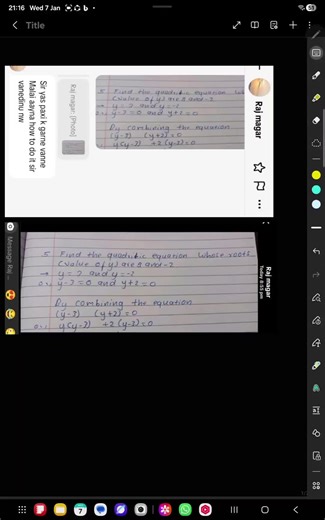 21:16 Wed 7 Jan
Title
Raj magar
5 Find the quadratic equation
(value of y) are 3 and -2
→ y = 3 and y = -2
or, y-3=0 and y+2=0
By combining the equation
(y-3) (y+2)=0
y(y-3) +2(y-3)=0
Raj magar (Photo)
Sir yas paxi k garne vanne
Malai aayna how to do it sir
vanedinu nw
Raj magar
Today 8:05 pm
5 Find the quadratic equation whose roots
(value of y) are 3 and -2
→ y = 3 and y = -2
or, y-3=0 and y+2=0
By combining the equation
(y-3) (y+2)=0
or, y(y-3) +2(y-3)=0
Message Raj